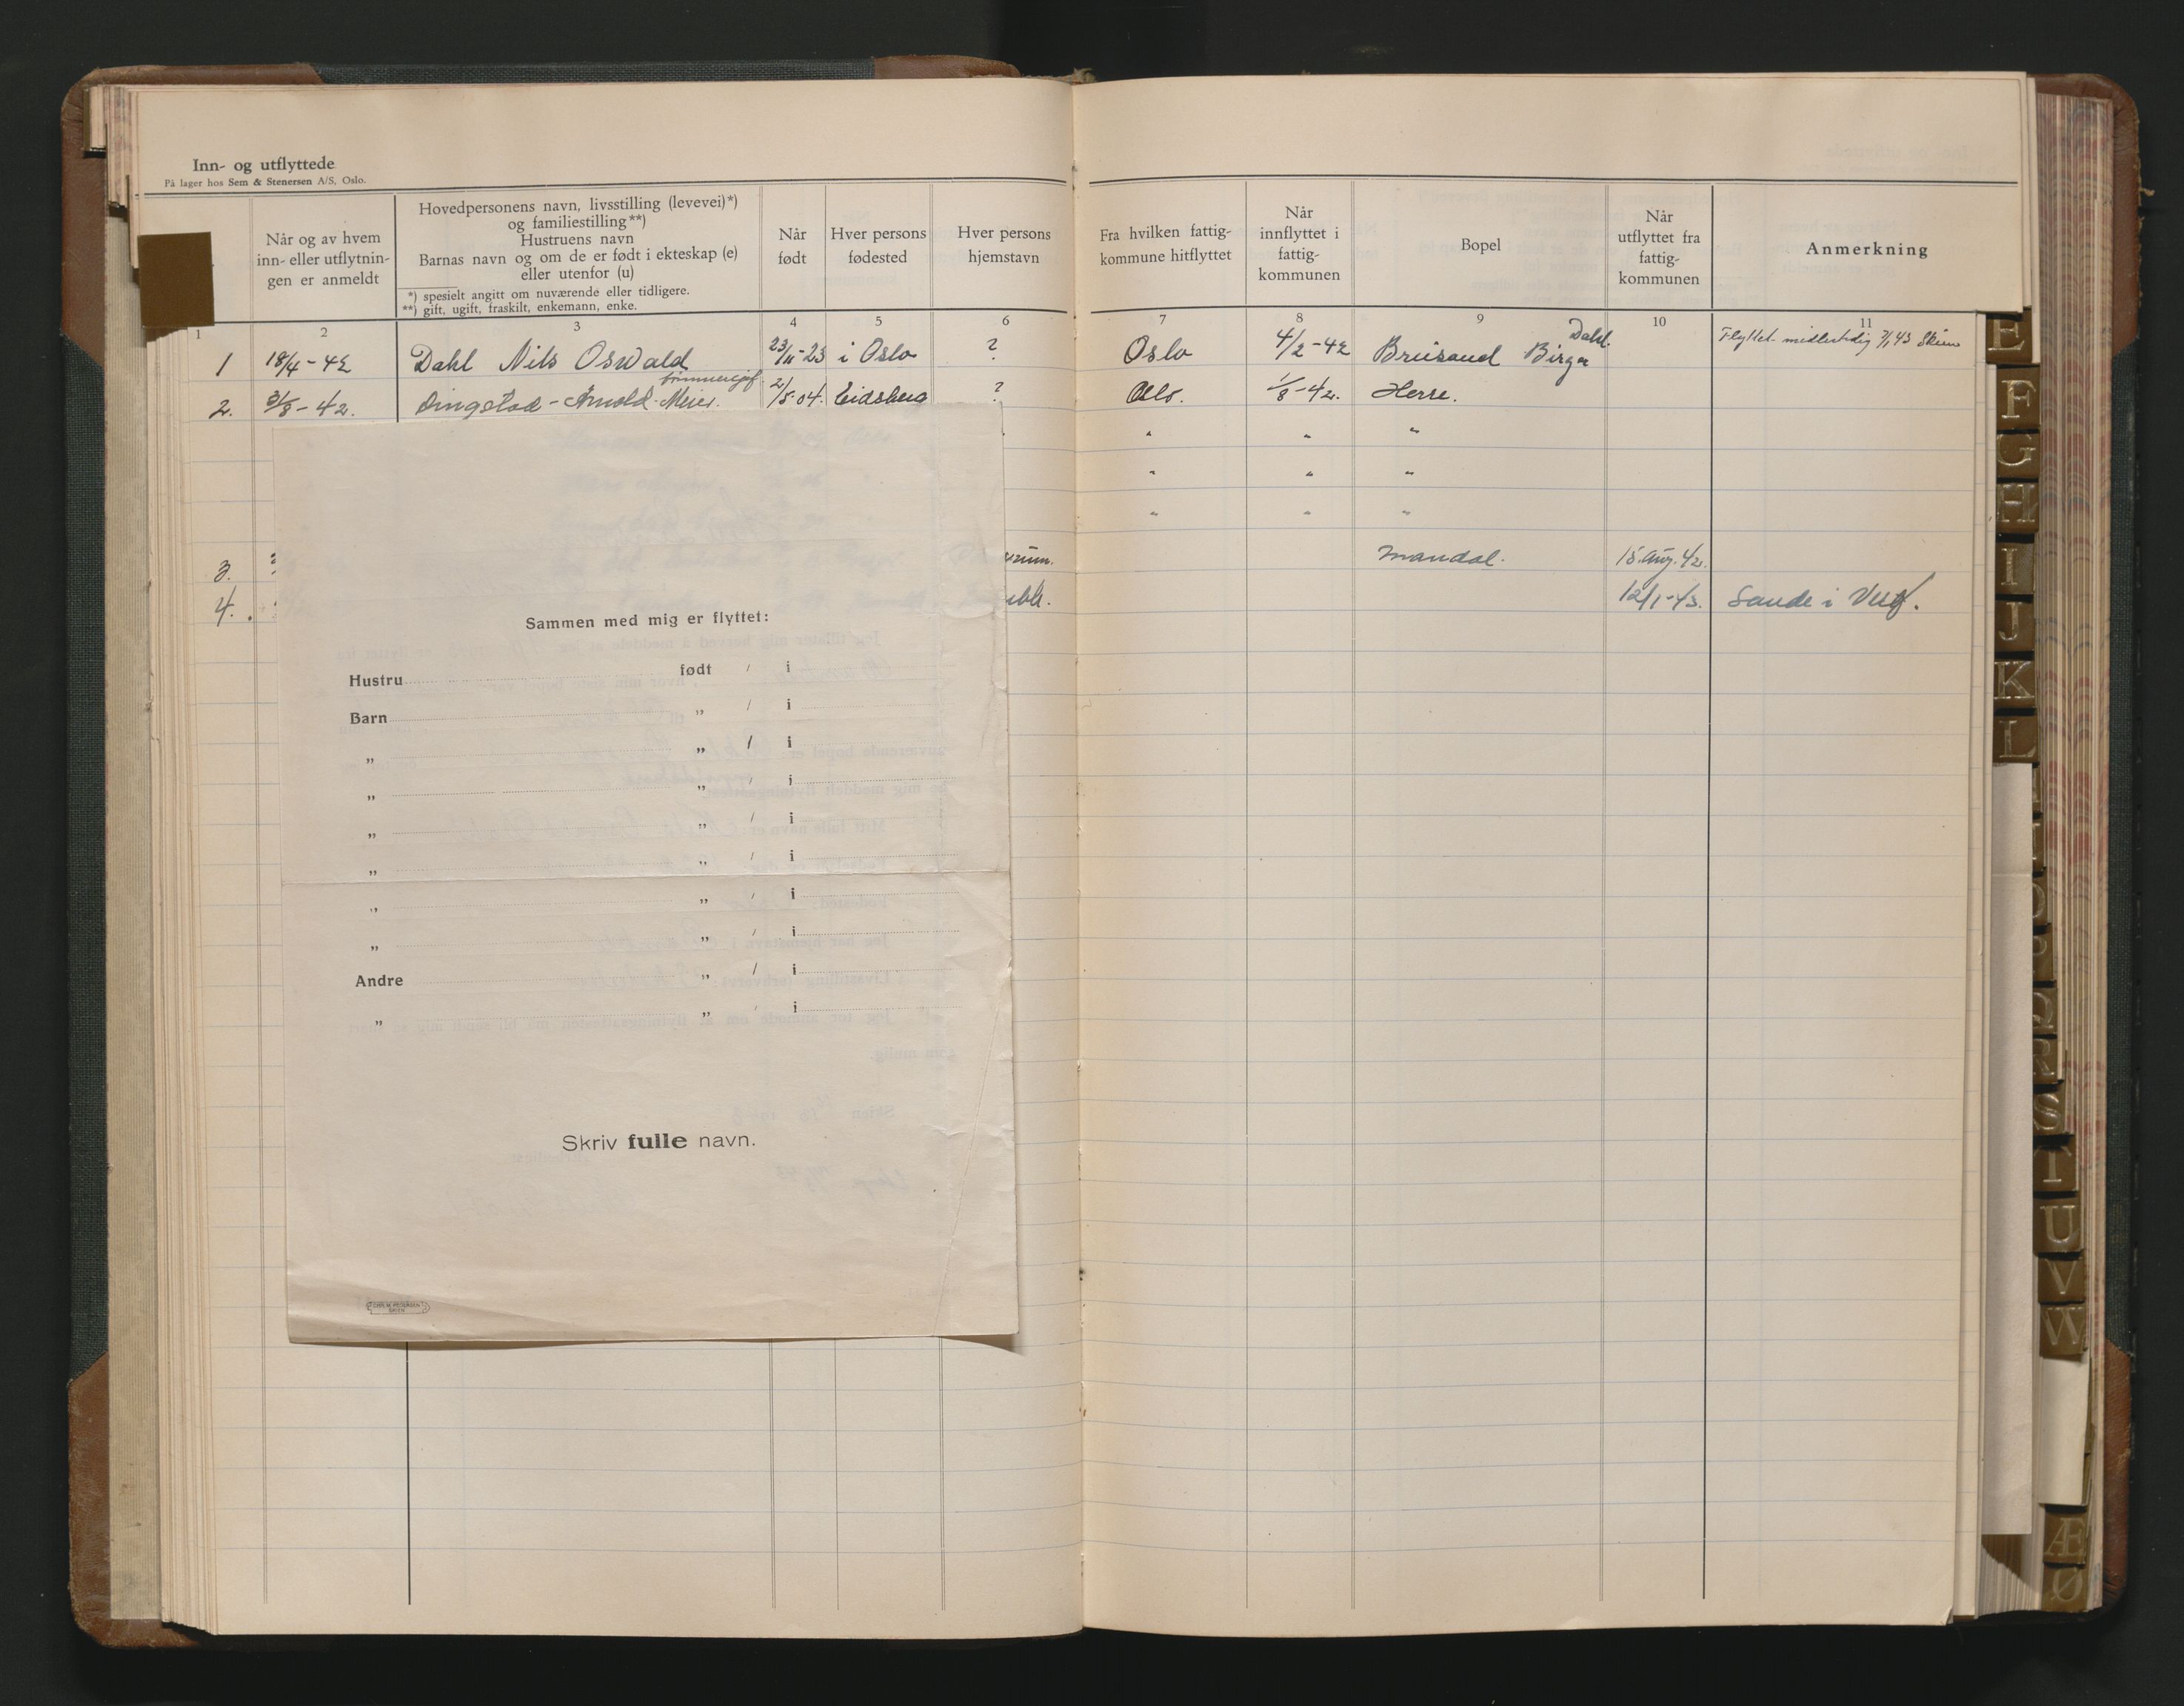 Inn- og utflyttede
På lager hos Sem & Stenersen A/S, Oslo.
Når og av hvem
inn- eller utflytnin-
gen er anmeldt
Hovedpersonens navn, livsstilling (levevei)*)
og familiestilling**)
Hustruens navn
Barnas navn og om de er født i ekteskap (e)
eller utenfor (u)
*) spesielt angitt om nuværende eller tidligere.
**) gift, ugift, fraskilt, enkemann, enke.
Når
født
Hver persons
fødested
Hver persons
hjemstavn
Fra hvilken fattig-
kommune hitflyttet
Når
innflyttet i
fattig-
kommunen
Bopel
Når
utflyttet fra
fattig-
kommunen
Anmerkning
1 2 3 4 5 6 7 8 9 10 11
1 18/4-42 Dahl Nils Oswald 23/11-23 i Oslo ? Oslo 4/2-42 Brusund Birger Dahl. Flyttet midlertidig 7/1 43 Skien
2. 3/8-42. Dingstad-Arnold-Meier. 2/5-04. Eidsberg ? Oslo. 1/8-42. Herre.
" " "
" " "
" " "
3. Mandal. 15. Aug. 42.
4. 12/1-43. Sande i Vestf.
Sammen med mig er flyttet:
Hustru født / i
Barn „ / i
„ „ / i
„ „ / i
„ „ / i
„ „ / i
„ „ / i
„ „ / i
Andre „ / i
„ „ / i
Skriv fulle navn.
E
F
G
H
I
J
K
L
R
S
T
U
V
W
Æ
Ø